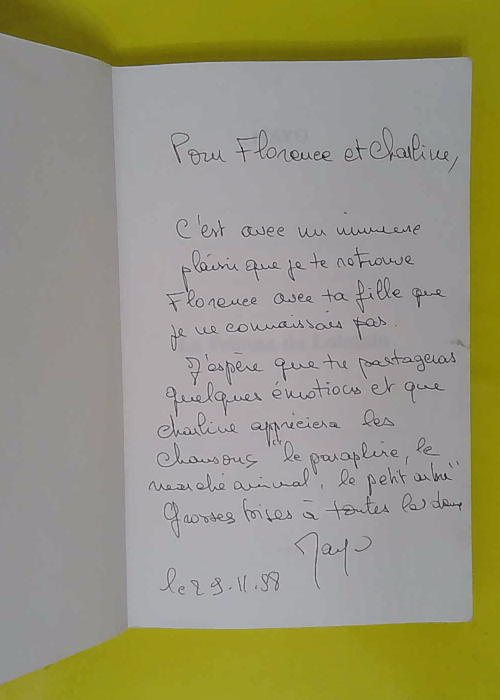 Pour Florence et Charline,
C'est avec un immense
plaisir que je te retrouve
Florence avec ta fille que
je ne connaissais pas.
J'espère que tu partageras
quelques émotions et que
charline appréciera les
chansons "le parapluie, le
marché animal, le petit arbre"
Grosses bises à toutes les deux
Mayo
le 29.11.98